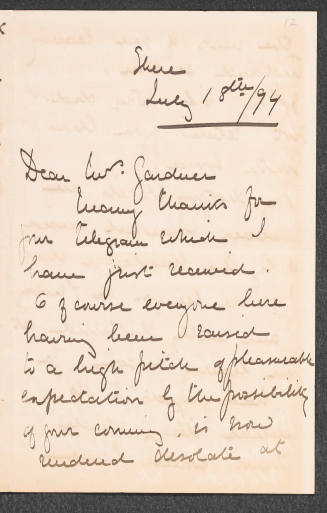 12
Shere
July 18th/94
Dear Mrs. Gardner
Many thanks for
your telegram which I
have just received.
Of course everyone here
having been raised
to a high pitch of pleasurable
expectation by the possibility
of your coming, is now
rendered desolate at